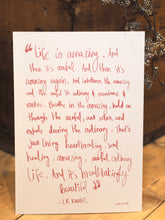 "Life is amazing. And
then it's awful. And then it's
amazing again. And in between the amazing
and the awful it's ordinary & mundane &
routine. Breathe in the amazing, hold on
through the awful, and relax and
exhale during the ordinary. That's
just living heartbreaking, soul-
healing, amazing, awful, ordinary
life. And it's breathtakingly
beautiful."
- L.R. KNOST.